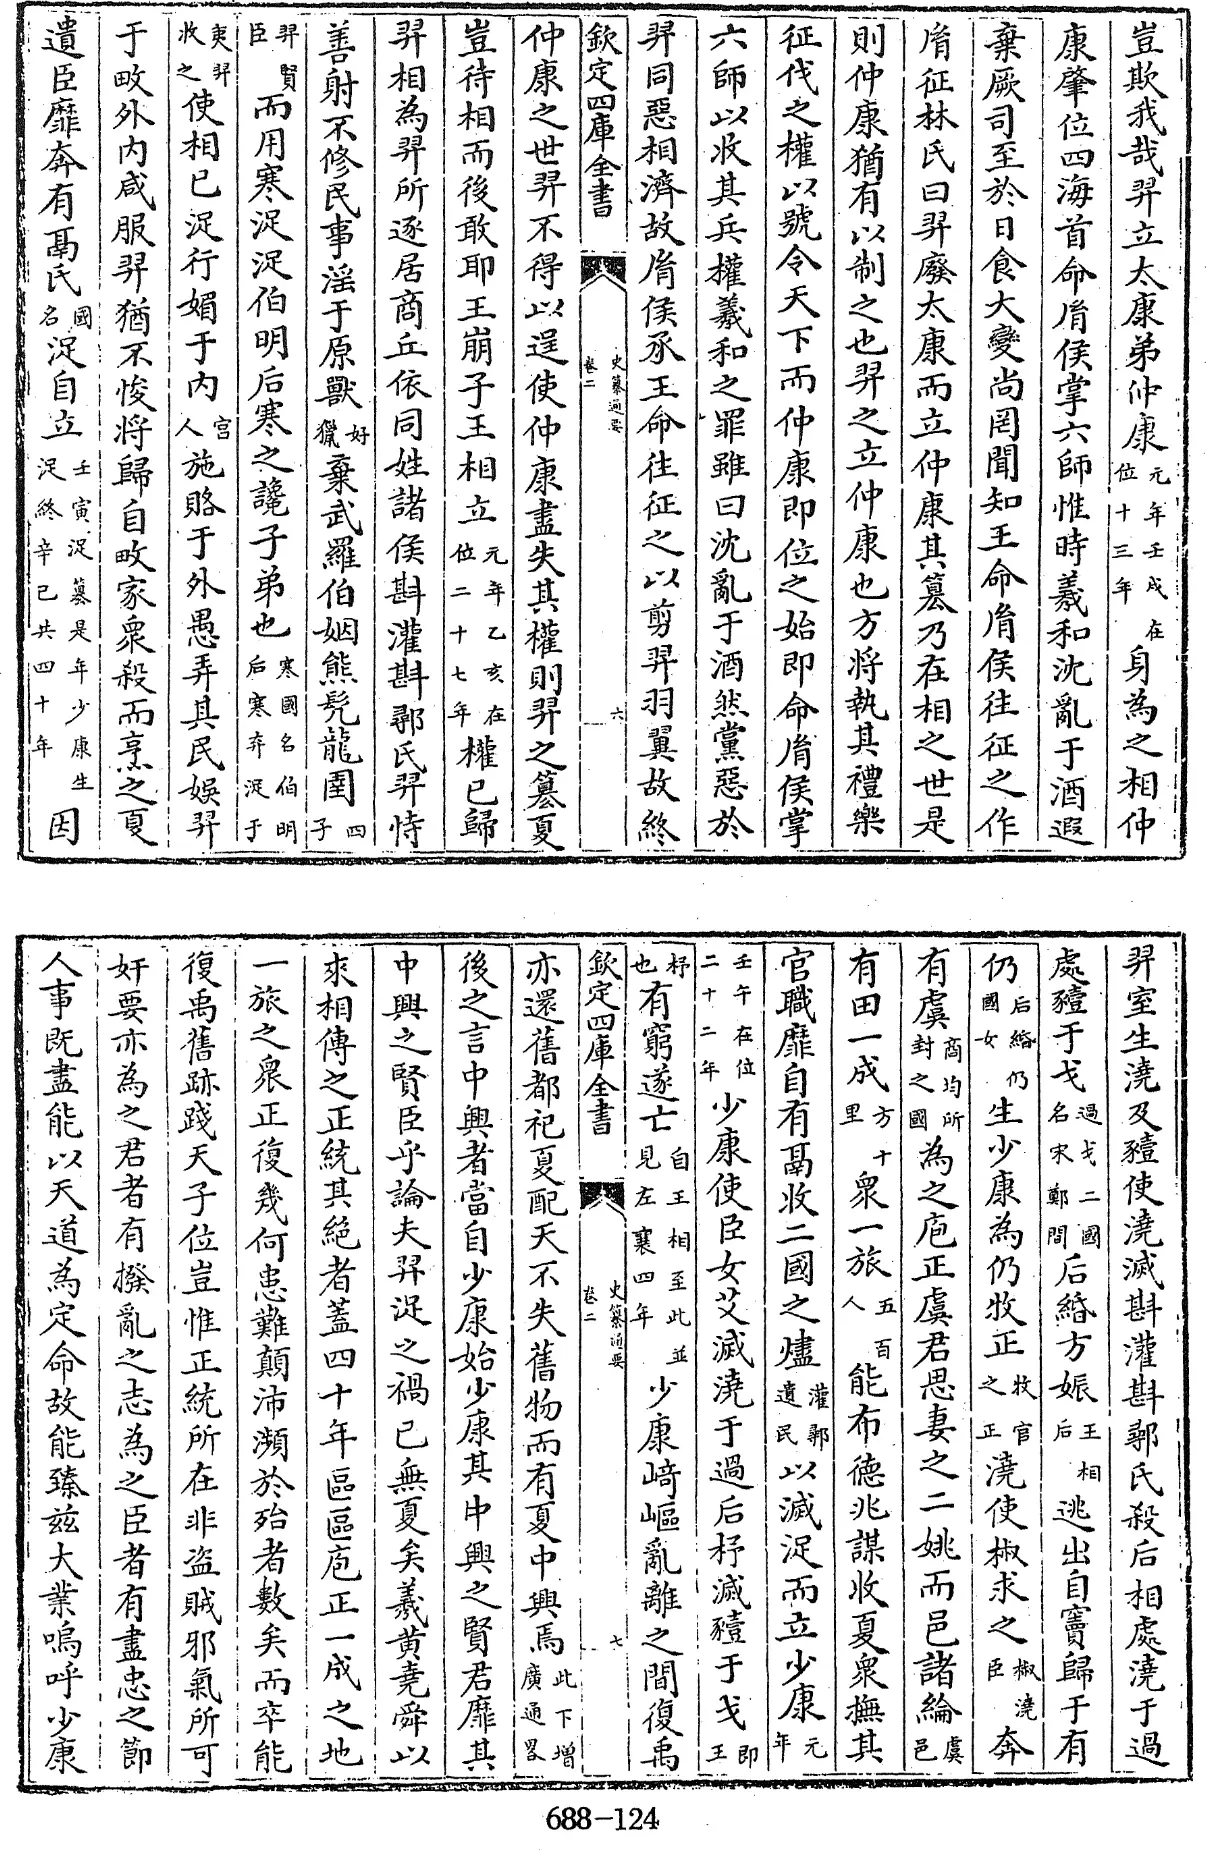 豈欺我哉羿立太康弟仲康元年壬戌在位十三年身為之相仲
康肇位四海首命胤侯掌六師惟時羲和沈亂于酒遐
棄厥司至於日食大變尚罔聞知王命胤侯往征之作
胤征林氏曰羿廢太康而立仲康其簒乃在相之世是
則仲康猶有以制之也羿之立仲康也方將執其禮樂
征伐之權以號令天下而仲康即位之始即命胤侯掌
六師以收其兵權羲和之罪雖曰沈亂于酒然黨惡於
羿同惡相濟故胤侯承王命往征之以剪羿羽翼故終
欽定四庫全書 史纂通要卷二 六
仲康之世羿不得以逞使仲康盡失其權則羿之簒夏
豈待相而後敢耶王崩子王相立元年乙亥在位二十七年權已歸
羿相為羿所逐居商丘依同姓諸侯斟灌斟鄩氏羿恃
善射不修民事淫于原獸好獵棄武羅伯姻熊髠龍圉四子
羿賢臣而用寒浞浞伯明后寒之讒子弟也寒國名伯明后寒弃浞于
夷羿收之使相已浞行媚于内宫人施賂于外愚弄其民娛羿
于畋外内咸服羿猶不悛將歸自畋家衆殺而烹之夏
遺臣靡奔有鬲氏國名浞自立壬寅浞簒是年少康生浞終辛巳共四十年因
羿室生澆及豷使澆滅斟灌斟鄩氏殺后相處澆于過
處豷于戈過戈二國名宋鄭間后緡方娠王相后逃出自竇歸于有
仍后緡仍國女生少康為仍牧正牧官之正澆使椒求之椒澆臣奔
有虞商均所封之國為之庖正虞君思妻之二姚而邑諸綸虞邑
有田一成方十里衆一旅五百人能布德兆謀收夏衆撫其
官職靡自有鬲收二國之燼灌鄩遺民以滅浞而立少康元年
壬午在位二十二年少康使臣女艾滅澆于過后杼滅豷于戈即王
杼也有窮遂亡自王相至此並見左襄四年少康崎嶇亂離之間復禹
欽定四庫全書 史纂通要卷二 七
亦還舊都祀夏配天不失舊物而有夏中興焉此下增廣通畧
後之言中興者當自少康始少康其中興之賢君靡其
中興之賢臣乎論夫羿浞之禍已無夏矣羲黄堯舜以
來相傳之正統其絶者蓋四十年區區庖正一成之地
一旅之衆正復幾何患難顛沛瀕於殆者數矣而卒能
復禹舊跡踐天子位豈惟正統所在非盗賊邪氣所可
奸要亦為之君者有撥亂之志為之臣者有盡忠之節
人事既盡能以天道為定命故能臻兹大業嗚呼少康
688-124